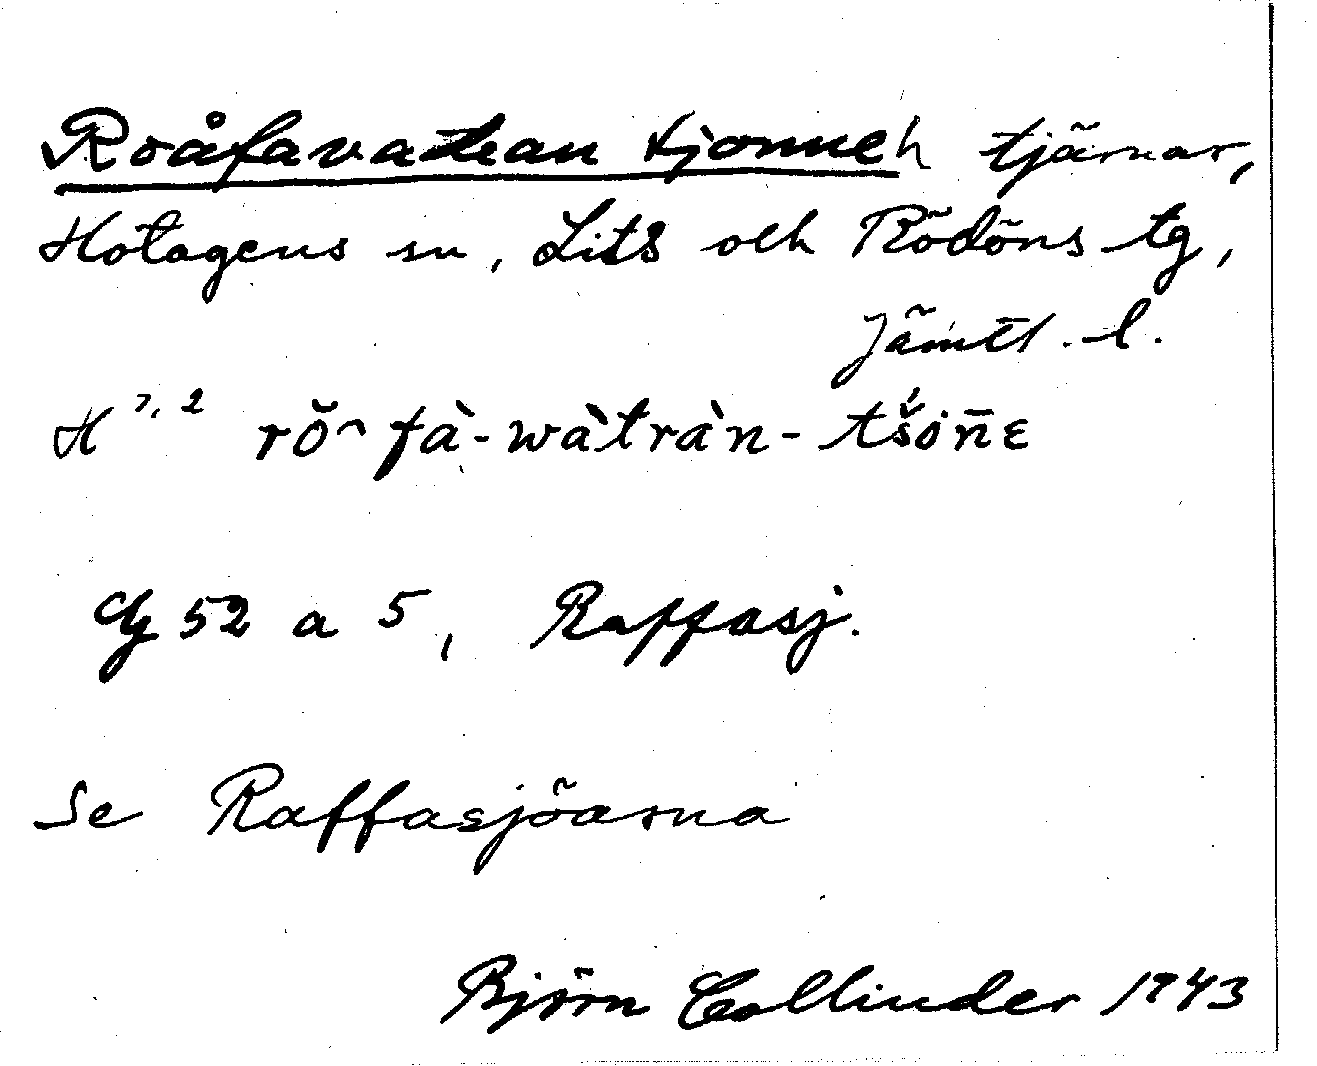 Roåfavatean tjonneh tjärnar,
Hotagens sn, Lits och Rödöns tg,
Jämtl. l.
H 7, 2 rŏ⁀fà-wàtràn-tš́ȯn̄ε
Gg 52 a 5, Raffasj.
Se Raffasjöarna
Björn Collinder 1943